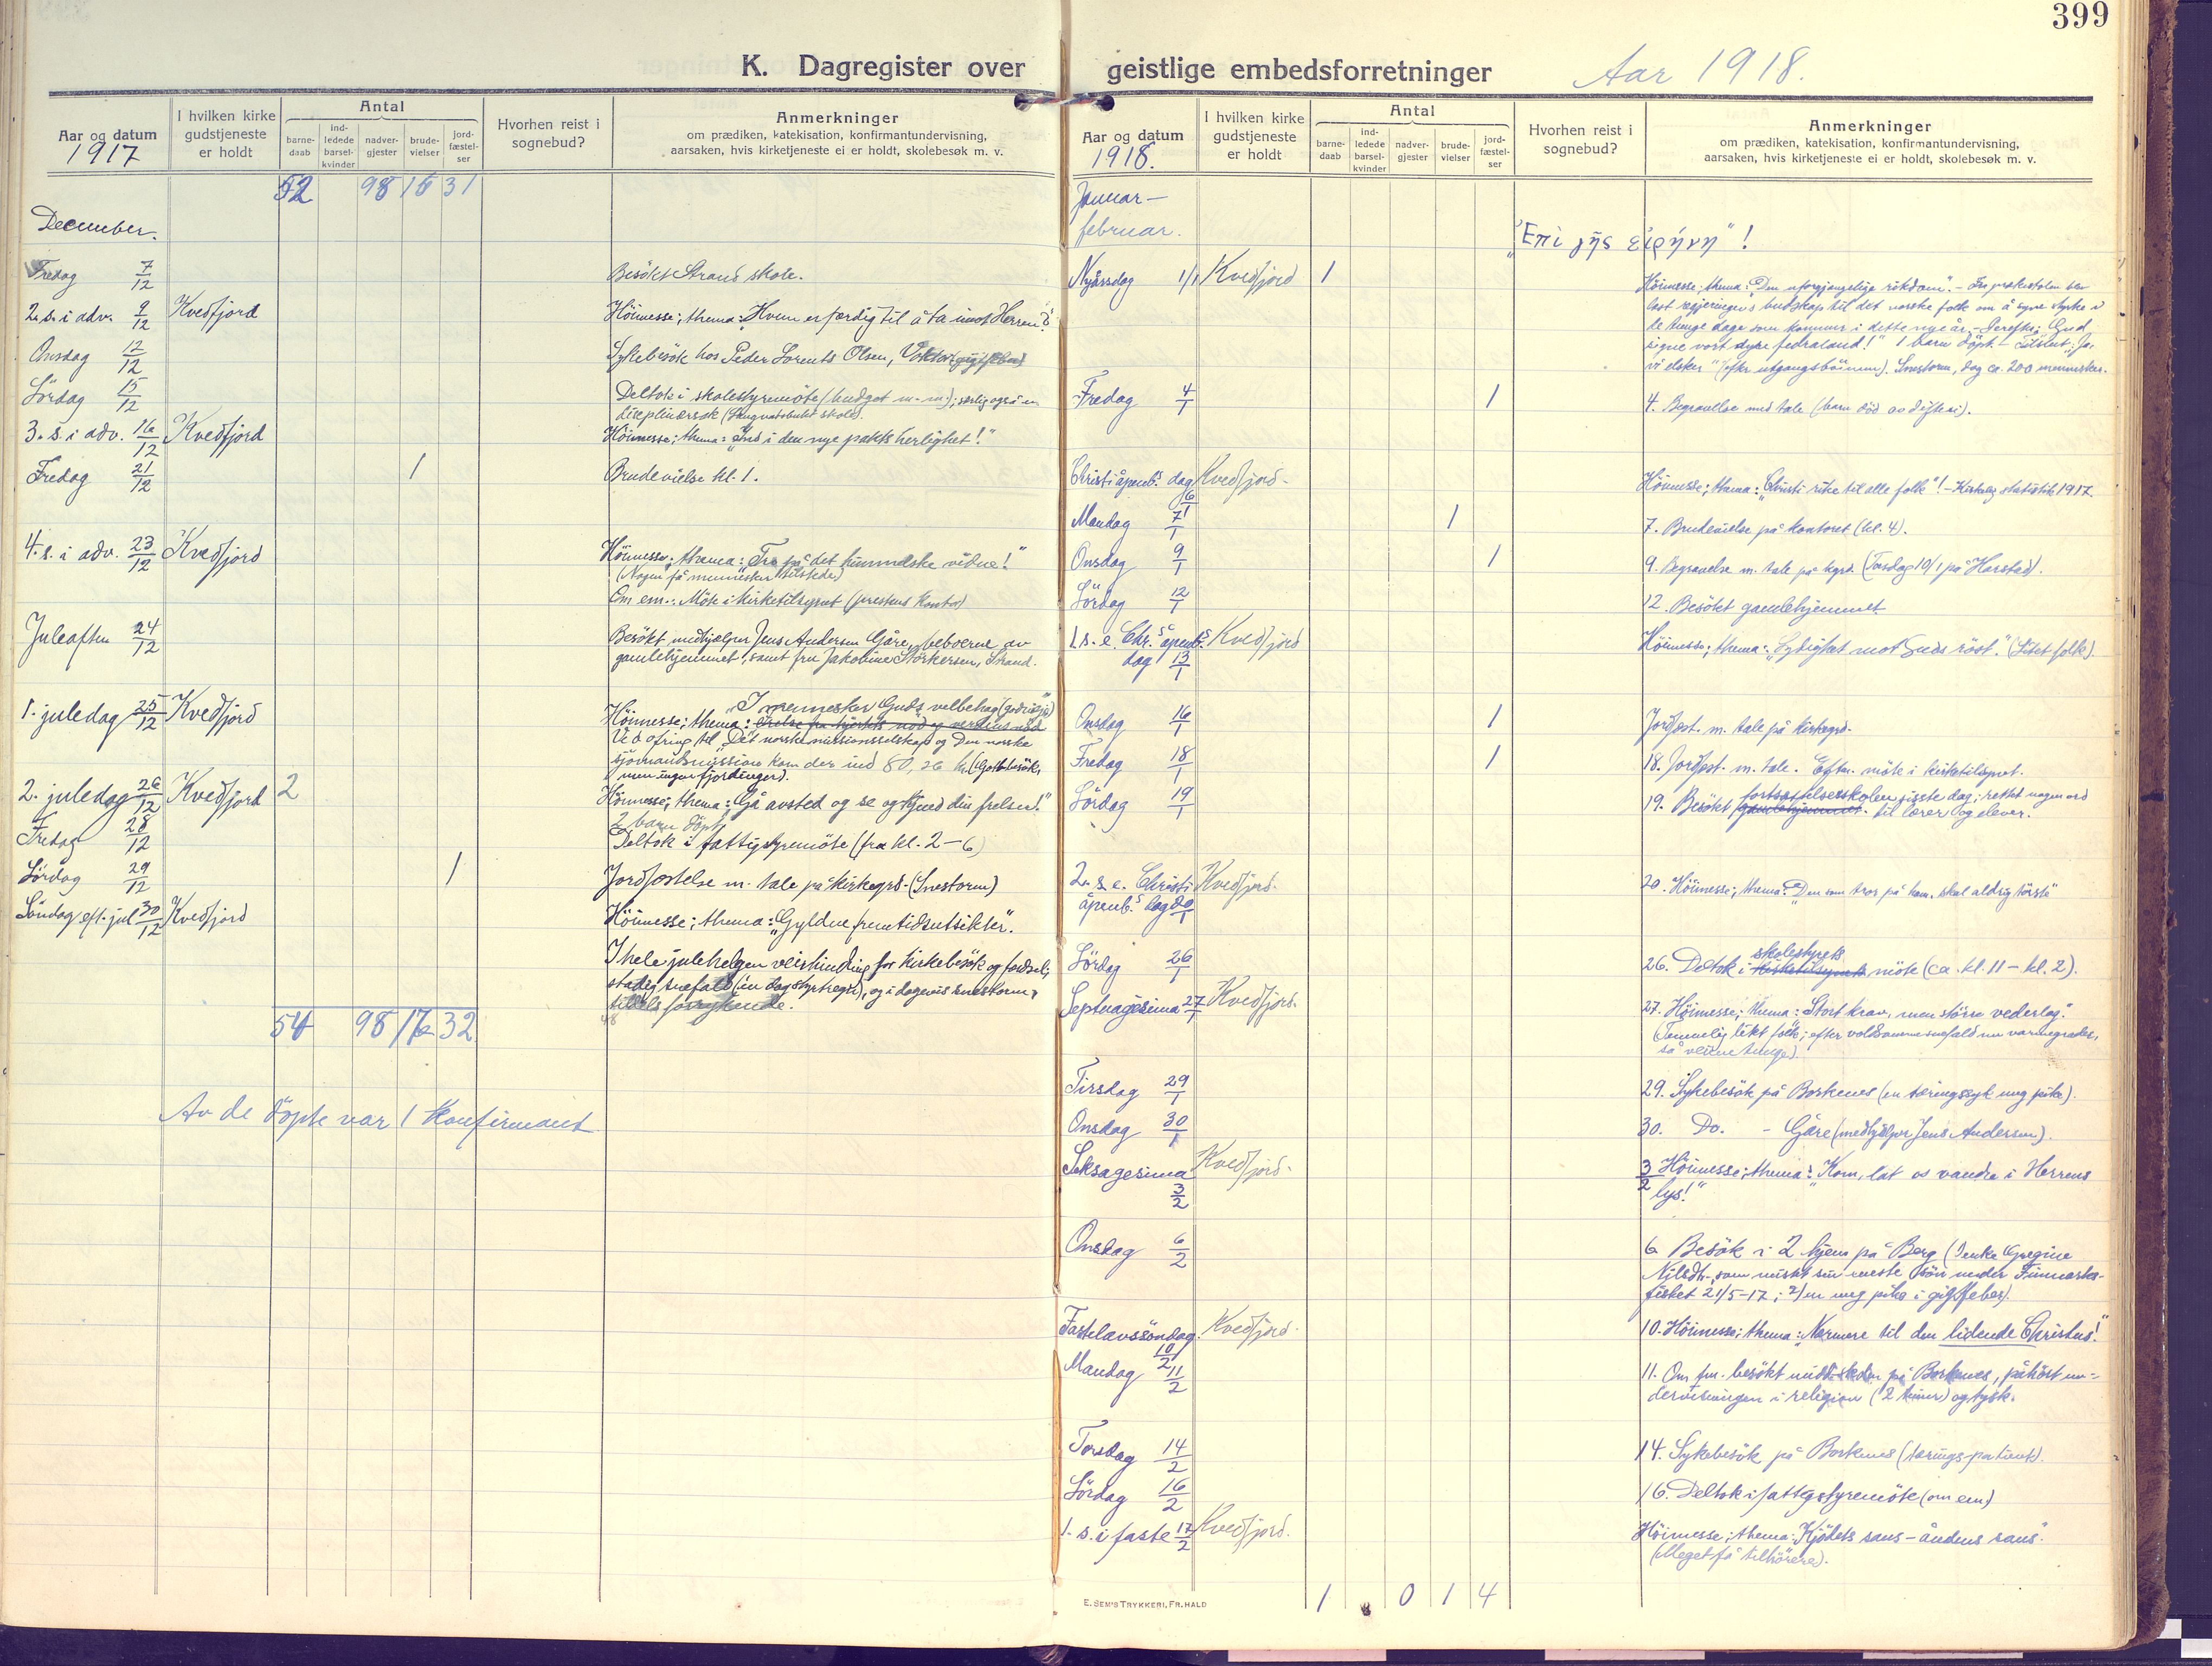 399
K. Dagregister over geistlige embedsforretninger Aar 1918.
Aar og datum
1917
I hvilken kirke
gudstjeneste
er holdt
Antal
barne-
daab
ind-
ledede
barsel-
kvinder
nadver-
gjester
brude-
vielser
jord-
fæstel-
ser
Hvorhen reist i
sognebud?
Anmerkninger
om prædiken, katekisation, konfirmantundervisning,
aarsaken, hvis kirketjeneste ei er holdt, skolebesøk m. v.
52 98 15 31
December.
Fredag 7/12 Besökt Strand skole.
2. s. i adv. 9/12 Kvedfjord Höimesse; thema: "Hvem er færdig til å ta imot Herren?"
Onsdag 12/12 Sykebesök hos Peder Lorents Olsen,
Lördag 15/12 Deltok i skolestyremöte (budget m. m.); særlig også en
diciplinærsak
3. s. i adv. 16/12 Kvedfjord Höimesse; thema: "Ind i den nye pakts herlighet!"
Fredag 21/12 1 Brudevielse kl. 1.
4. s. i adv. 23/12 Kvedfjord Höimesse; thema: "Tro på det himmelske vidne!"
(Nogen få mennesker tilstede)
Om em.: Möte i kirketilsynet (prestens kontor)
Juleaften 24/12 Besökt medhjælper Jens Andersen Gåre, beboerne av
gamlehjemmet, samt fru Jakobine Störkersen, Strand.
1. juledag 25/12 Kvedfjord "I mennesker Guds velbehag
Höimesse; thema: Frelse fra hjertets nöd og verdens nöd
Ved ofring til "Det norske missionsselskap og Den norske
sjömandsmission kom der ind 80,26 kr. (Godt besök,
men ingen fjordinger).
2. juledag 26/12 Kvedfjord 2 Höimesse; thema: "Gå avsted og se og kjend din frelser!"
2 barn döpt
Fredag 28/12 Deltok i fattigstyremöte (fra kl. 2-6)
Lördag 29/12 1 Jordfæstelse m. tale på kirkegrd. (Snestorm)
Söndag eft. jul 30/12 Kvedfjord Höimesse; thema: "Gyldne fremtidsutsikter".
I hele julehelgen veirhindring for kirkebesök og færdsel;
stadig snefald (en dag styrtregn), og i dagevis snestorm,
tildels forrykende.
54 98 16 32
Av de döpte var 1 konfirmant
Aar og datum
1918.
I hvilken kirke
gudstjeneste
er holdt
Antal
barne-
daab
ind-
ledede
barsel-
kvinder
nadver-
gjester
brude-
vielser
jord-
fæstel-
ser
Hvorhen reist i
sognebud?
Anmerkninger
om prædiken, katekisation, konfirmantundervisning,
aarsaken, hvis kirketjeneste ei er holdt, skolebesøk m. v.
Januar –
februar.
"Ἐπὶ γῆς εἰρήνη"!
Nyårsdag 1/1 Kvedfjord 1 Höimesse; thema: "Den uforgjængelige rikdom". – Fra prækestolen blev
læst regjeringens budskap til det norske folk om å syne styrke i
de tunge dage som kommer i dette nye år. – Derefter: "Gud
signe vort dyre fedraland!" 1 barn döpt. – Tilslut: "Ja,
vi elsker" (efter utgangsbönnen). Snestorm, dog ca. 200 mennesker.
Fredag 4/1 1 4. Begravelse med tale (barn död av difteri).
Christi åpenb.s dag 6/1 Kvedfjord. Höimesse; thema: "Christi rike til alle folk"! – Kirkelig statistik 1917.
Mandag 7/1 1 7. Brudevielse på kontoret (kl. 4).
Onsdag 9/1 1 9. Begravelse m. tale på kgrd. (Torsdag 10/1 på Harstad).
Lördag 12/1 12. Besökt gamlehjemmet
1. s. e. Chr.s åpenb.s Kvedfjord Höimesse; thema: "Lydighet mot Guds röst." (Litet folk).
dag 13/1
Onsdag 16/1 1 Jordfæst. m. tale på kirkegrd.
Fredag 18/1 1 18. Jordfæst. m. tale. Efterm. möte i kirketilsynet.
Lördag 19/1 19. Besökt gamlehjemmet fortsættelsesskolen sisste dag; rettet nogen ord
til lærer og elever.
2. s. e. Christi Kvedfjord. 20. Höimesse; thema: "Den som tror på ham, skal aldrig törste"
åpenb.s dag 20/1
Lördag 26/1 26. Deltok i kirketilsynets skolestyrets möte (ca. kl. 11 – kl. 2).
Septuagesima 27/1 Kvedfjord. 27. Höimesse; thema: "Stort krav, men större vederlag."
(Temmelig litet folk; efter voldsomme snefald nu varmegrader,
så veiene tunge).
Tirsdag 29/1 29. Sykebesök på Borkenes (en tæringssyk ung pike).
Onsdag 30/1 30. Do. – Gåre (medhjælper Jens Andersen).
Seksagesima 3/2 Kvedfjord. 3/2 Höimesse; thema: "Kom, lat os vandre i Herrens
lys!"
Onsdag 6/2 6. Besök i 2 hjem på Berg (enke Gregine
Nilsdtr., som mistet sin eneste sön under Finmarks-
fisket 21/5-17; 2) en ung pike i giftfeber).
Fastelavssöndag 10/2 Kvedfjord. 10. Höimesse; thema: "Nærmere til den lidende Christus!"
Mandag 11/2 11. Om fm. besökt middelskolen på Borkenes, påhört un-
dervisningen i religion (2 timer) og tysk.
Torsdag 14/2 14. Sykebesök på Borkenes (tærings-patient).
Lördag 16/2 16. Deltok i fattigstyremöte (om em)
1. s. i faste 17/2 Kvedfjord. Höimesse; thema: "Kjödets sans – åndens sans".
(Meget få tilhörere).
1 0 1 4
E. SEM'S TRYKKERI, FR.HALD